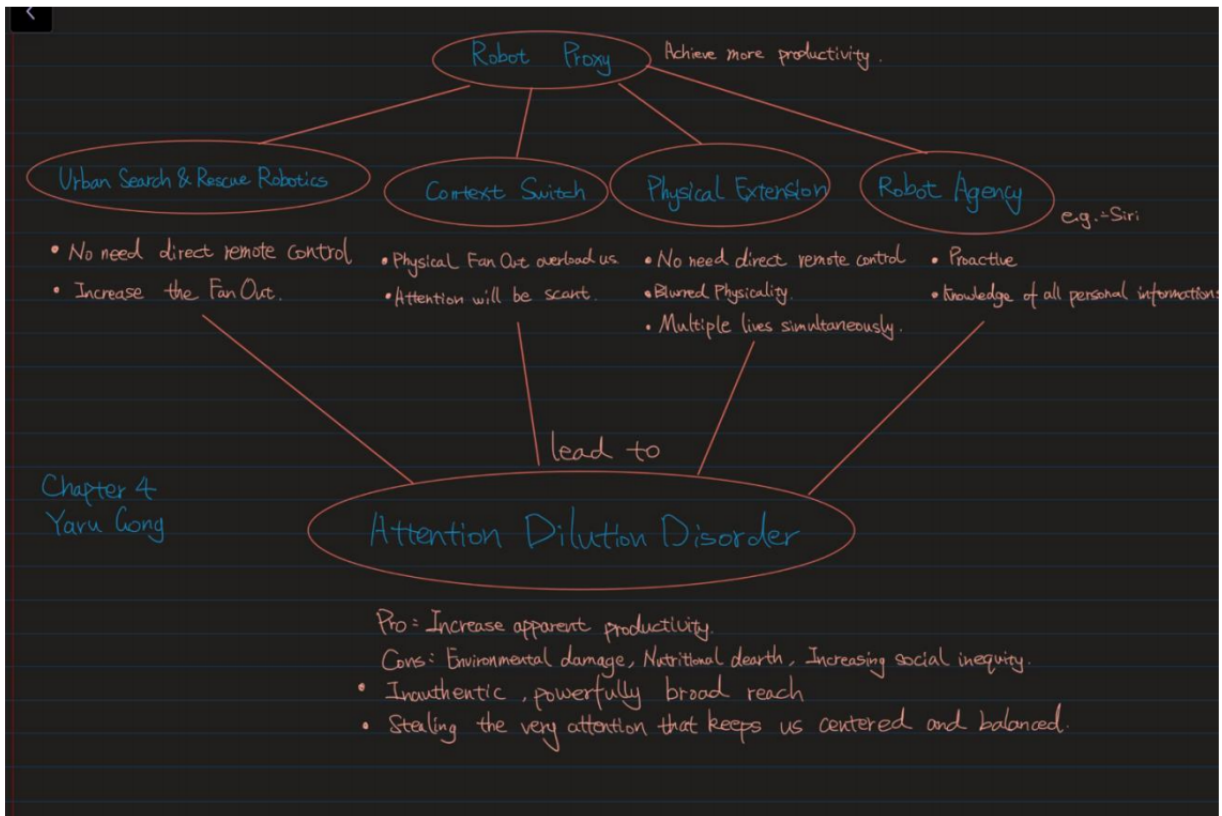 Robot Proxy
Achieve more productivity.
Urban Search & Rescue Robotics
Context Switch
Physical Extension
Robot Agency
e.g.=Siri
• No need direct remote control
• Increase the Fan Out.
• Physical Fan Out overload us
• Attention will be scant.
• No need direct remote control
• Blurred Physicality.
• Multiple lives simultaneously.
• Proactive
• Knowledge of all personal informations
lead to
Chapter 4
Yaru Gong
Attention Dilution Disorder
Pro: Increase apparent productivity.
Cons: Environmental damage, Nutritional dearth, Increasing social inequity.
• Inauthentic, powerfully broad reach
• Stealing the very attention that keeps us centered and balanced.